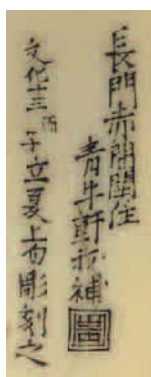 長門赤間関住
青牛軒補
文化十三丙子立夏上旬彫刻之